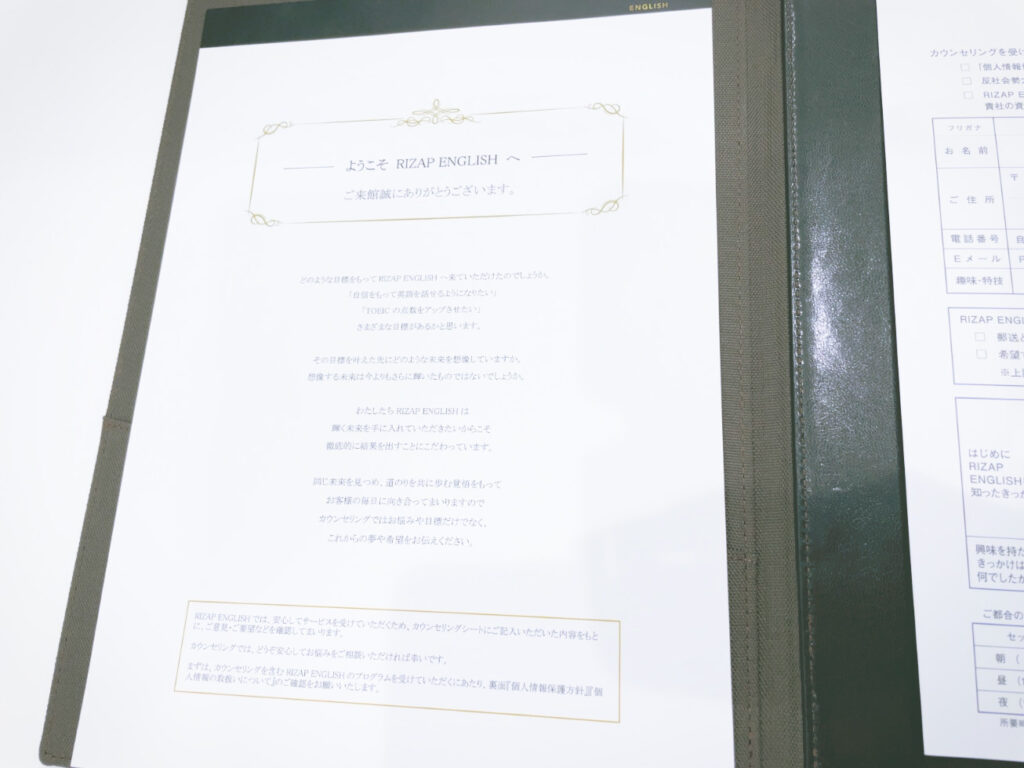 ENGLISH
ようこそ RIZAP ENGLISH へ
ご来館誠にありがとうございます。
どのような目標をもって RIZAP ENGLISH へ来ていただけたのでしょうか。
「自信をもって英語を話せるようになりたい」
「TOEIC の点数をアップさせたい」
さまざまな目標があるかと思います。
その目標を叶えた先にどのような未来を想像していますか。
想像する未来は今よりもさらに輝いたものではないでしょうか。
わたしたち RIZAP ENGLISH は
輝く未来を手に入れていただきたいからこそ
徹底的に結果を出すことにこだわっています。
同じ未来を見つめ、道のりを共に歩む覚悟をもって
お客様の毎日に向き合ってまいりますので
カウンセリングではお悩みや目標だけでなく、
これからの夢や希望をお伝えください。
RIZAP ENGLISH では、安心してサービスを受けていただくため、カウンセリングシートにご記入いただいた内容をもと
に、ご意見・ご要望などを確認してまいります。
カウンセリングでは、どうぞ安心してお悩みをご相談いただければ幸いです。
まずは、カウンセリングを含む RIZAP ENGLISH のプログラムを受けていただくにあたり、裏面『個人情報保護方針』『個
人情報の取扱いについて』のご確認をお願いいたします。
カウンセリングを受け
□ 「個人情報
□ 反社会勢
□ RIZAP E
貴社の資
フリガナ
お 名 前
〒
ご 住 所
電話番号 自
Eメール P
趣味・特技
RIZAP ENGL
□ 郵送
□ 希望
※上
はじめに
RIZAP
ENGLISH
知ったきっか
興味を持た
きっかけは
何でしたか
ご都合の
セッ
朝 (
昼 (
夜 (
所要